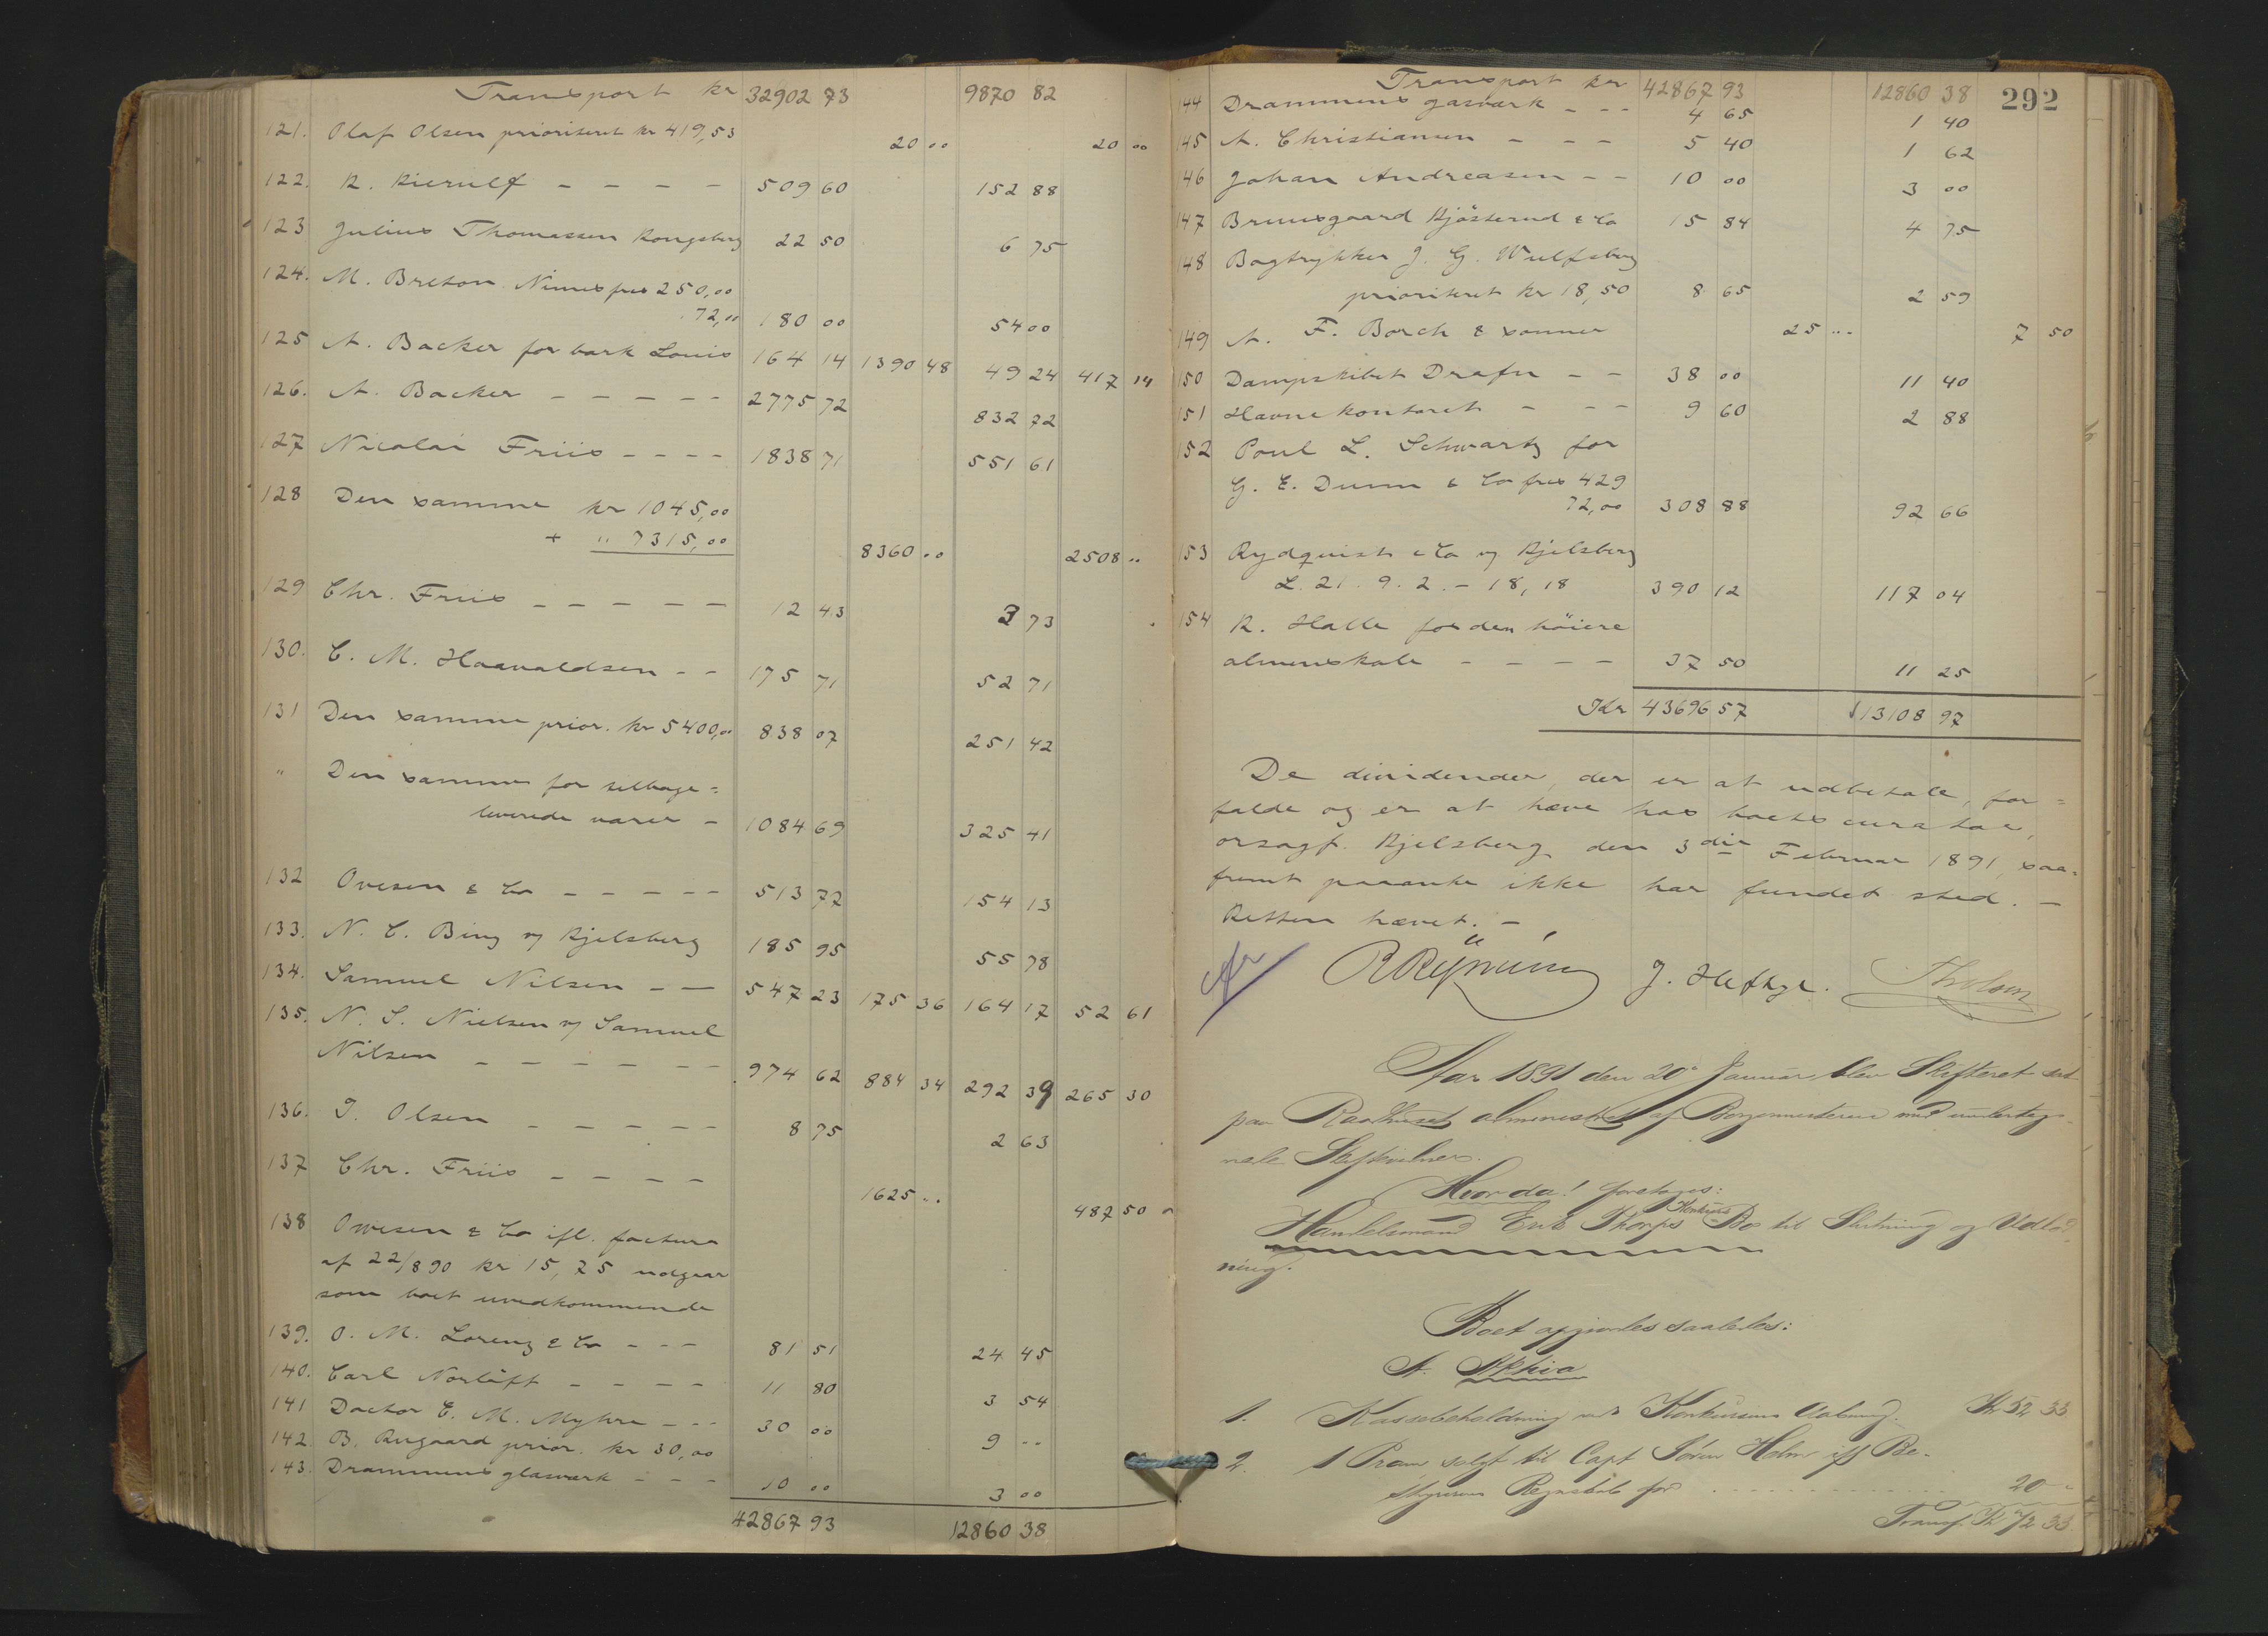 Transport kr 32902 73 9870 82
121. Olaf Olsen prioriteret kr 419,53 20 00 20 00
122. K. Kierulf - - - - 509 60 152 88
123 Julius Thomassen Kongsberg 22 50 6 75
124. M. Breton Nimes frcs 250,00
72,00 180 00 54 00
125 A. Backer for bark Louis 164 14 1390 48 49 24 417 14
126. A. Backer - - - - - 2775 72 832 72
127 Nicolai Friis - - - - 1838 71 551 61
128 Den samme kr 1045,00
+ " 7315,00 8360 .. 2508 ..
129 Chr. Friis - - - - - 12 43 3 73
130. C. M. Haavaldsen - - 175 71 52 71
131 Den samme prior. kr 5400,00 838 07 251 42
" Den samme for tilbage=
leverede varer - 1084 69 325 41
132 Ovesen & Co - - - - - 513 72 154 13
133. N. C. Bing v/ Kjelsberg 185 95 55 78
134. Samuel Nilsen - - 547 23 175 36 164 17 52 61
135. N. S. Nielsen v/ Samuel
Nilsen - - - - - - 974 62 884 34 292 39 265 30
136. J. Olsen - - - - - 8 75 2 63
137 Chr. Friis - - - - 1625 .. 487 50
138 Ovesen & Co ifl. factura
af 22/8 90 kr 15,75 udgaar
som boet uvedkommende
139. O. M. Lorenz & Co - - - 81 51 24 45
140. Carl Norløff - - - - 11 80 3 54
141 Doctor E. M. Myhre - - - 30 00 9 --
142. B. Rugaard prior. kr 30,00
143. Drammens glasværk - - - 10 00 3 00
42867 93 12860 38
Transport kr 42867 93 12860 38 292
144 Drammens gasværk - - - 4 65 1 40
145 A. Christiansen - - - 5 40 1 62
146 Johan Andreasen - - 10 00 3 00
147 Bruusgaard Kjøsterud & Co 15 84 4 75
148 Bogtrykker J. G. Wulfsberg
prioriteret kr 18,50 8 65 2 59
149 A. F. Borch & sønner 25 .. 7 50
150 Dampskibet Drafn - - 38 00 11 40
151 Havnekontoret - - - 9 60 2 88
152 Poul L. Schwartz for
G. E. Dunn & Co frcs 429
72,00 308 88 92 66
153 Rydquist & Co v/ Kjelsberg
L. 21. 9. 2. - 18,18 390 12 117 04
154 K. Halle for den høiere
almenskole - - - - 37 50 11 25
Kr 43696 57 13108 97
De dividender, der er at udbetale, for=
falde og er at hæve hos boets curator,
orsagf. Kjelsberg den 3die Februar 1891, saa=
fremt paaanke ikke har fundet sted. -
Retten hævet. -
J. Heftye.
Aar 1891 den 20de Januar blev Skifteret sat
paa Raadhuset administreret af Borgermesteren med underteg-
nede Skiftevidner.
Hvorda! foretoges:
Handelsmand Erik Thorps Konkurs Bo til Slutning og Udlod-
ning.
Boet opgjordes saaledes:
A. Aktiva
1. Kassebeholdning ved Konkursens Aabning. Kr 52 33
2. 1 Pram solgt til Capt Søren Holm iflg Be-
styrerens Regnskab for 20 -
Transp. Kr 72 33